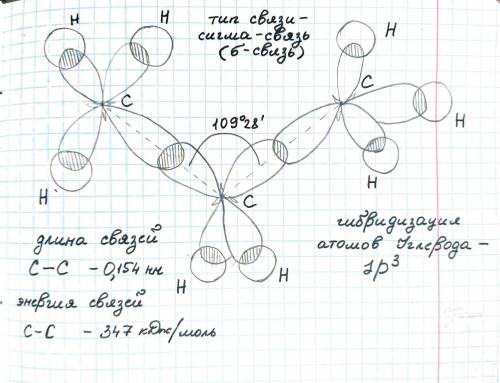 H
H
тип связи -
сигма-связь
(б-связь)
H
C
C
109°28'
H
H
C
H
H
H
длина связей
C-C - 0,154 нм
гибридизация
атомов углерода -
sp³
энергия связей
C-C - 347 кДж/моль